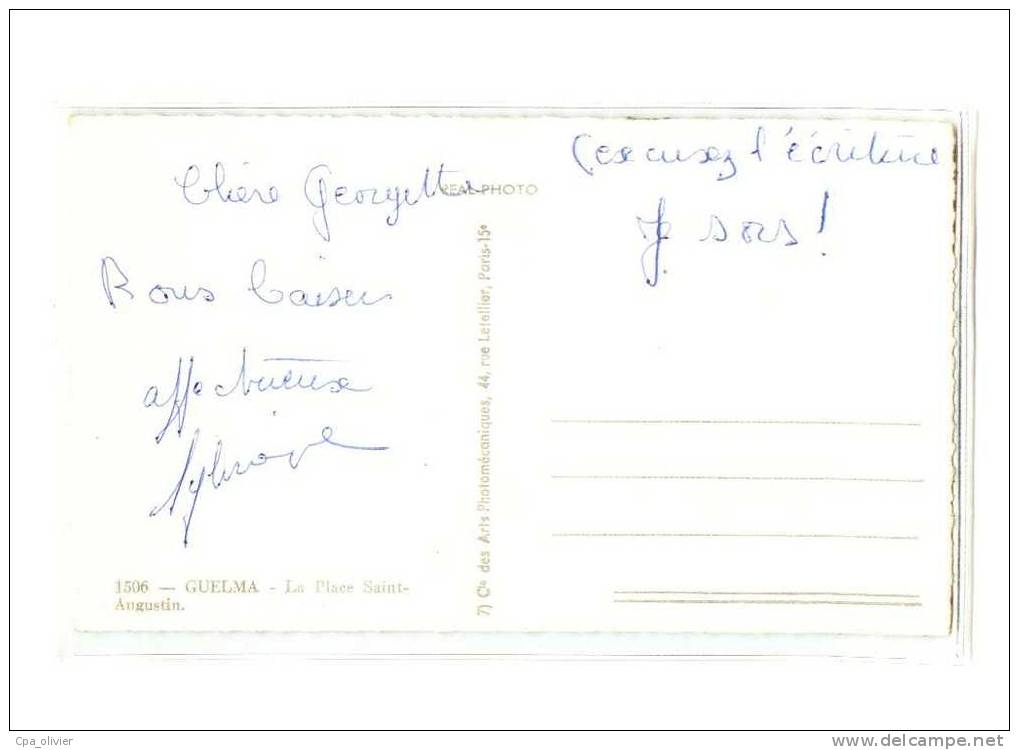 Chère Georgette
REAL PHOTO
Bons baisers
affectueux
(excusez l'écriture
Je sors !
1506 — GUELMA - La Place Saint-
Augustin.
7) Cie des Arts Photomécaniques, 44, rue Letellier, Paris-15e
Cpa_olivier
www.delcampe.net